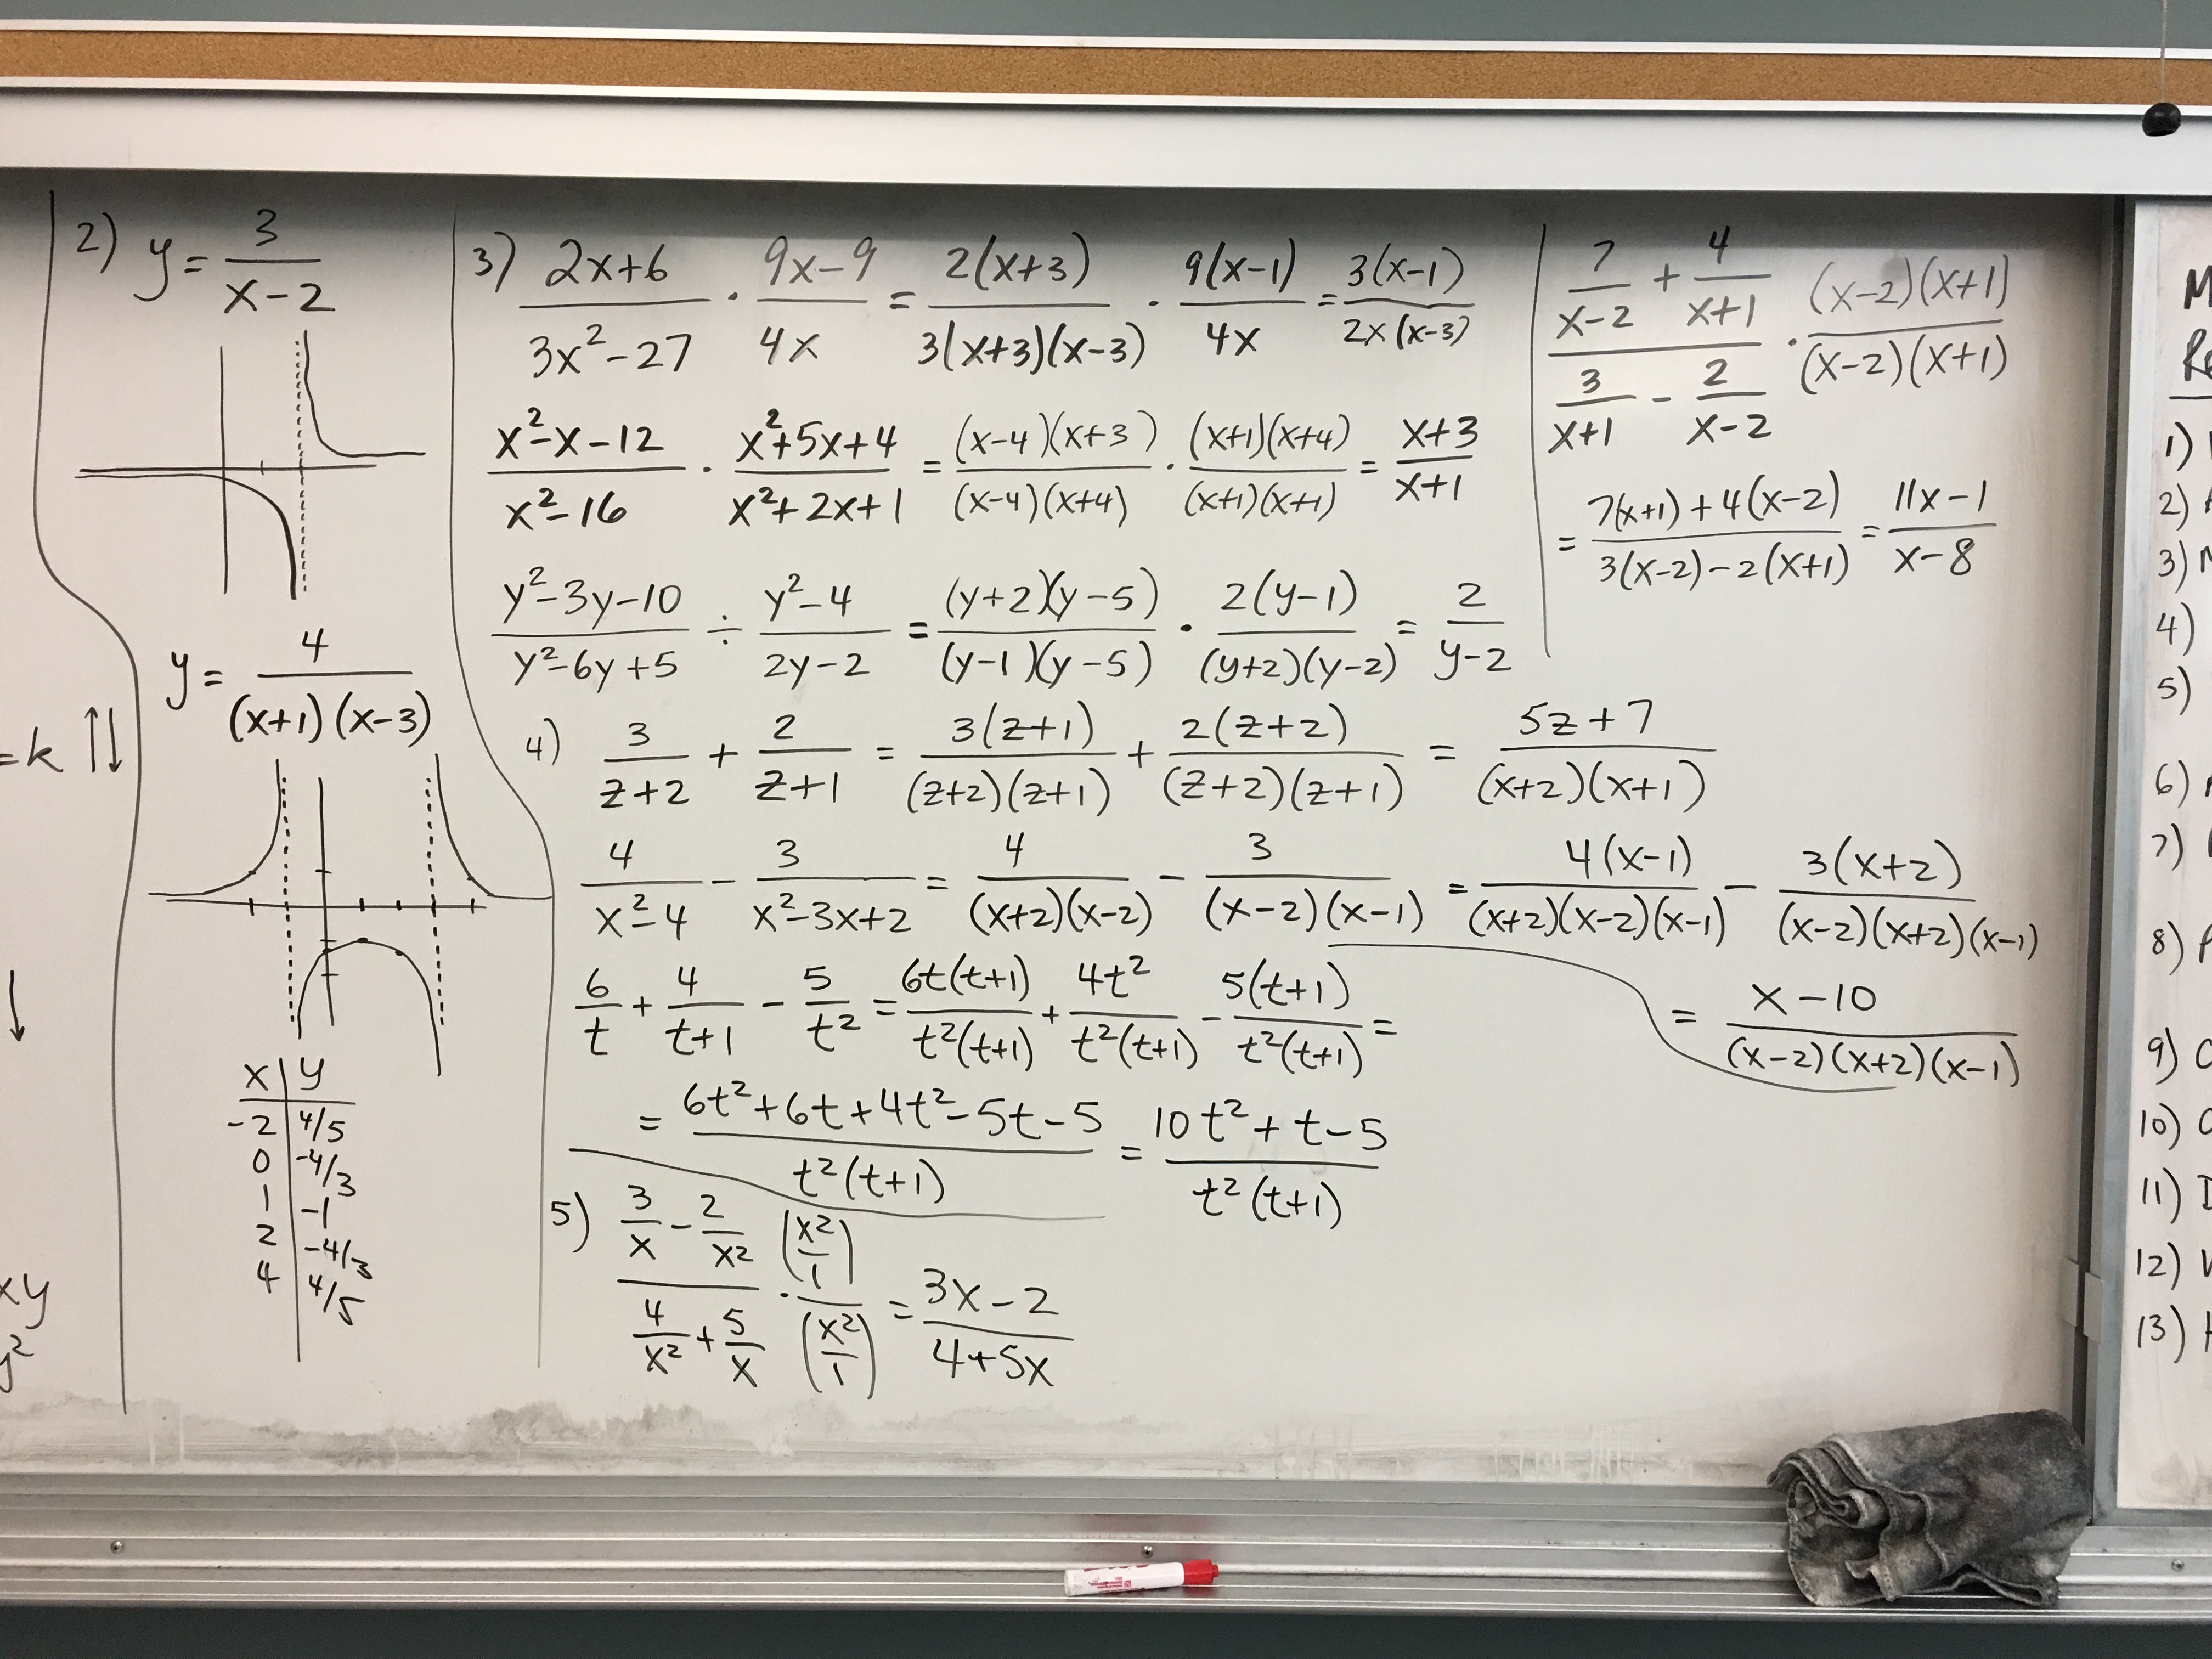 = k ↑↓
↓
xy
y²
2) y = 3/(x-2)
y = 4/((x+1)(x-3))
x | y
-2 | 4/5
0 | -4/3
1 | -1
2 | -4/3
4 | 4/5
3) (2x+6)/(3x²-27) · (9x-9)/(4x) = 2(x+3)/(3(x+3)(x-3)) · 9(x-1)/(4x) = 3(x-1)/(2x(x-3))
(x²-x-12)/(x²-16) · (x²+5x+4)/(x²+2x+1) = (x-4)(x+3)/((x-4)(x+4)) · (x+1)(x+4)/((x+1)(x+1)) = (x+3)/(x+1)
(y²-3y-10)/(y²-6y+5) ÷ (y²-4)/(2y-2) = (y+2)(y-5)/((y-1)(y-5)) · 2(y-1)/((y+2)(y-2)) = 2/(y-2)
4) 3/(z+2) + 2/(z+1) = 3(z+1)/((z+2)(z+1)) + 2(z+2)/((z+2)(z+1)) = (5z+7)/((x+2)(x+1))
4/(x²-4) - 3/(x²-3x+2) = 4/((x+2)(x-2)) - 3/((x-2)(x-1)) = 4(x-1)/((x+2)(x-2)(x-1)) - 3(x+2)/((x-2)(x+2)(x-1))
= (x-10)/((x-2)(x+2)(x-1))
6/t + 4/(t+1) - 5/t² = 6t(t+1)/(t²(t+1)) + 4t²/(t²(t+1)) - 5(t+1)/(t²(t+1)) =
= (6t²+6t+4t²-5t-5)/(t²(t+1)) = (10t²+t-5)/(t²(t+1))
5) (3/x - 2/x²)/(4/x² + 5/x) · (x²/1)/(x²/1) = (3x-2)/(4+5x)
(7/(x-2) + 4/(x+1))/(3/(x+1) - 2/(x-2)) · (x-2)(x+1)/((x-2)(x+1))
= (7(x+1)+4(x-2))/(3(x-2)-2(x+1)) = (11x-1)/(x-8)
M
Re
1)
2)
3)
4)
5)
6)
7)
8)
9)
10)
11)
12)
13)